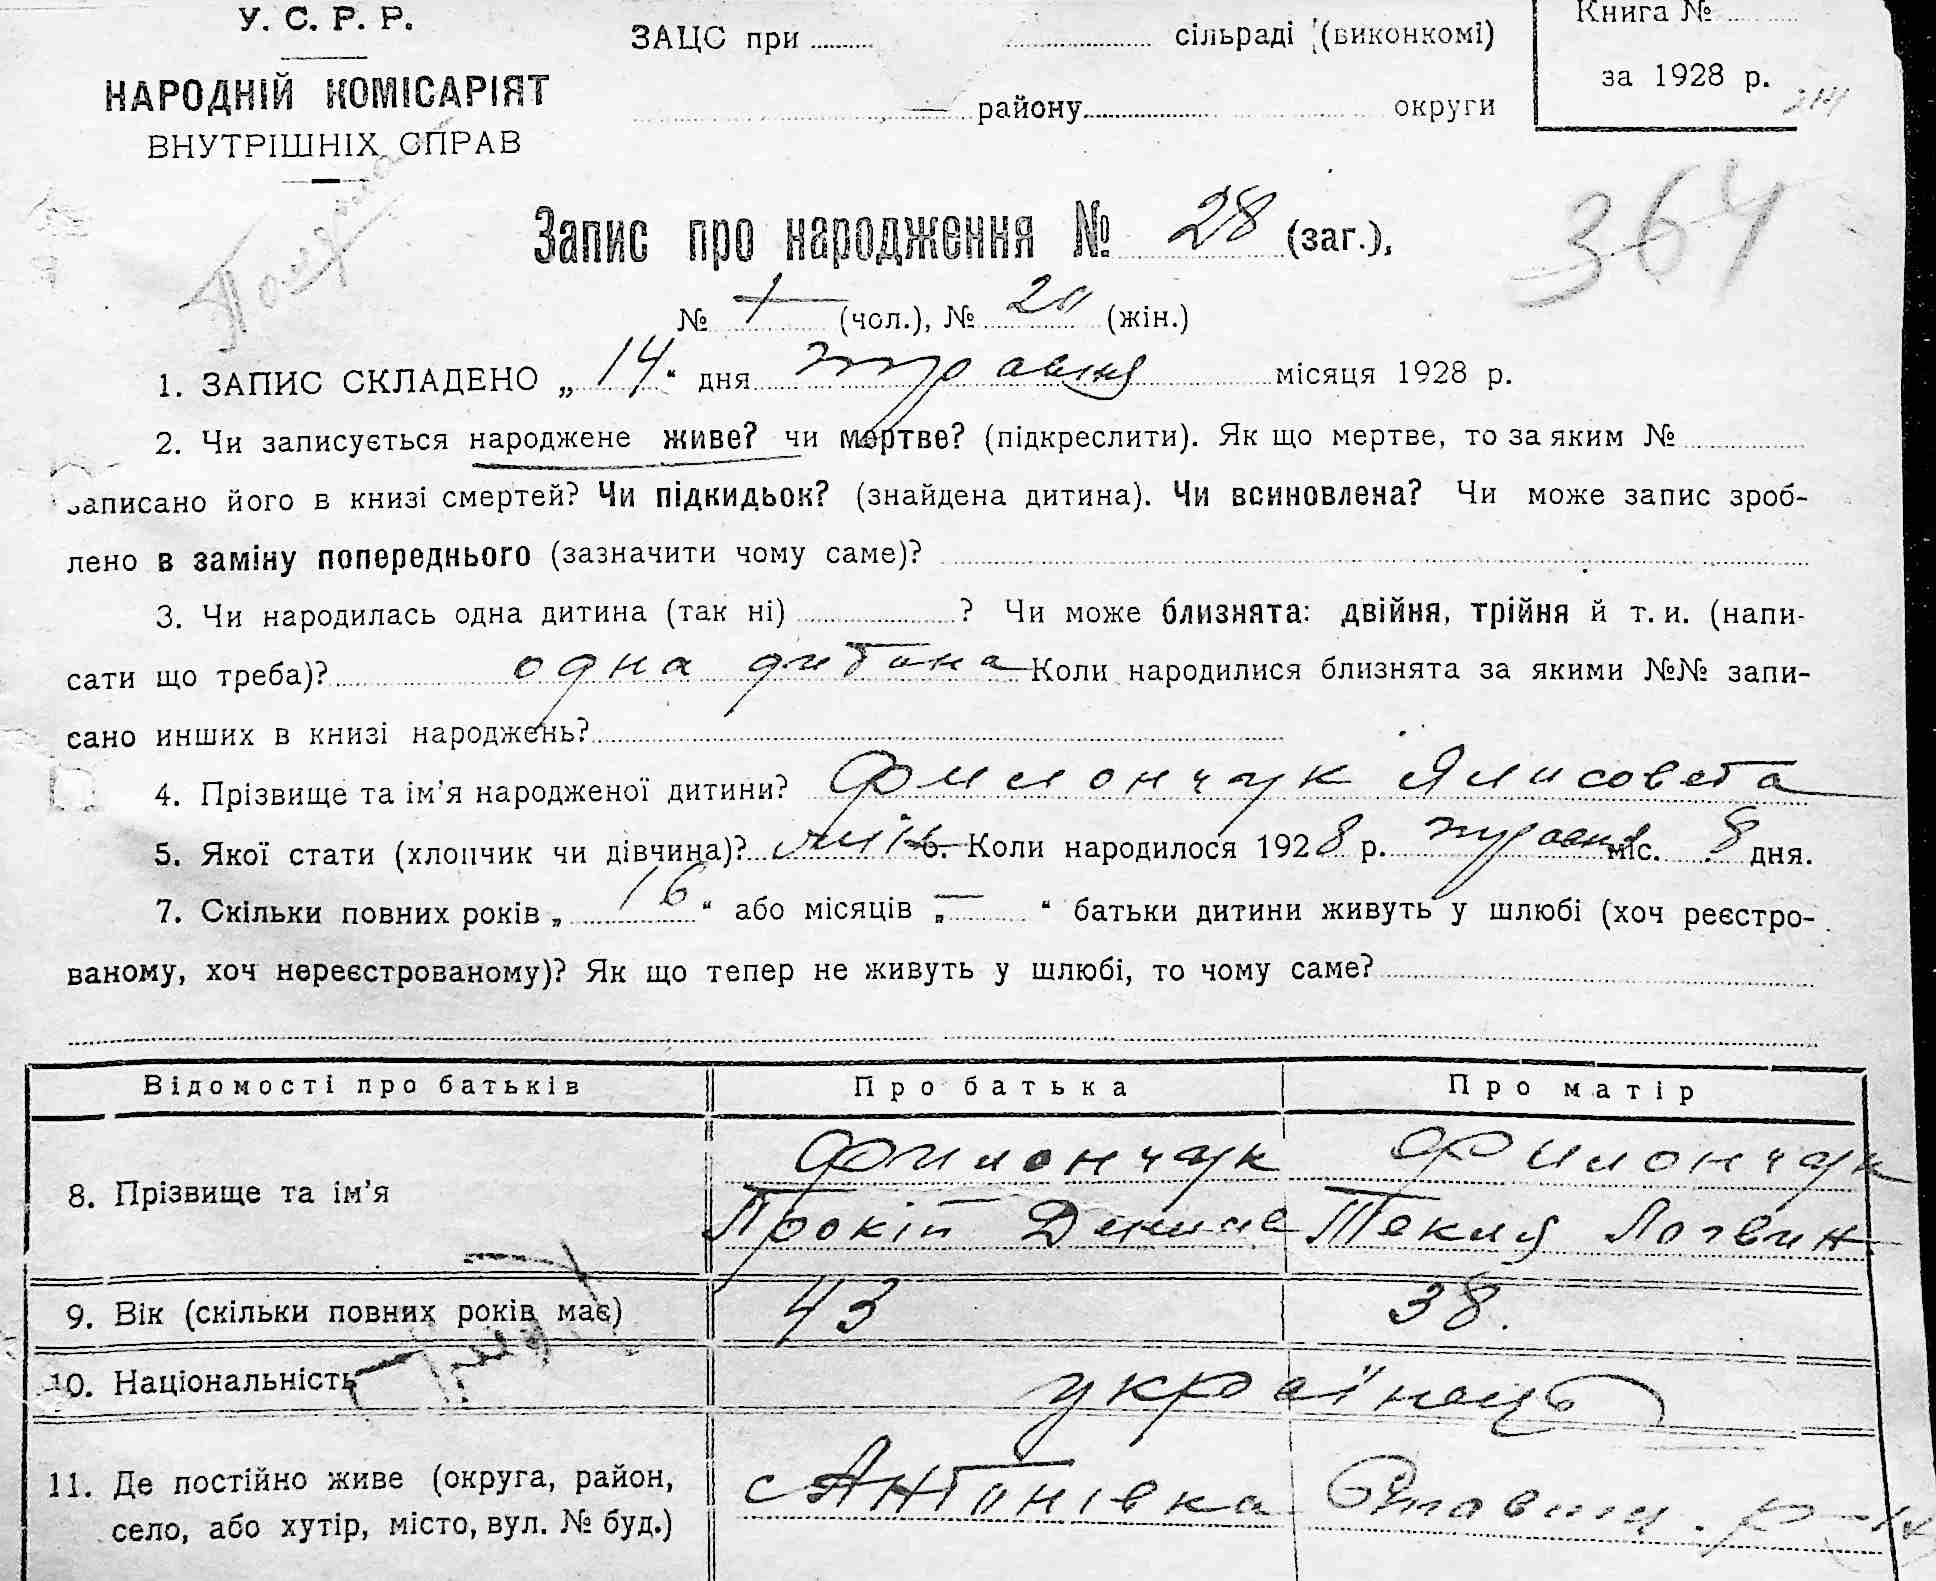 У. С. Р. Р.
НАРОДНІЙ КОМІСАРІЯТ
ВНУТРІШНІХ СПРАВ
ЗАЦС при сільраді (виконкомі)
району округи
Книга №
за 1928 р.
364
Запис про народження № 28 (заг.),
№ (чол.), № 20 (жін.)
1. ЗАПИС СКЛАДЕНО „14“ дня травня місяця 1928 р.
2. Чи записується народжене живе? чи мертве? (підкреслити). Як що мертве, то за яким №
записано його в книзі смертей? Чи підкидьок? (знайдена дитина). Чи всиновлена? Чи може запис зроб-
лено в заміну попереднього (зазначити чому саме)?
3. Чи народилась одна дитина (так ні) ? Чи може близнята: двійня, трійня й т. и. (напи-
сати що треба)? одна дитина Коли народилися близнята за якими №№ запи-
сано инших в книзі народжень?
4. Прізвище та ім'я народженої дитини? Филончук Ялисовета
5. Якої стати (хлопчик чи дівчина)? 6. Коли народилося 1928 р. травня міс. 8 дня.
7. Скільки повних років „16“ або місяців „—“ батьки дитини живуть у шлюбі (хоч реєстро-
ваному, хоч нереєстрованому)? Як що тепер не живуть у шлюбі, то чому саме?
Відомості про батьків Про батька Про матір
8. Прізвище та ім'я Филончук Филончук
Прокіп Денисе Текля Логвин
9. Вік (скільки повних років має) 43 38.
10. Національність українець
11. Де постійно живе (округа, район,
село, або хутір, місто, вул. № буд.) с Антонівка Ставищ.